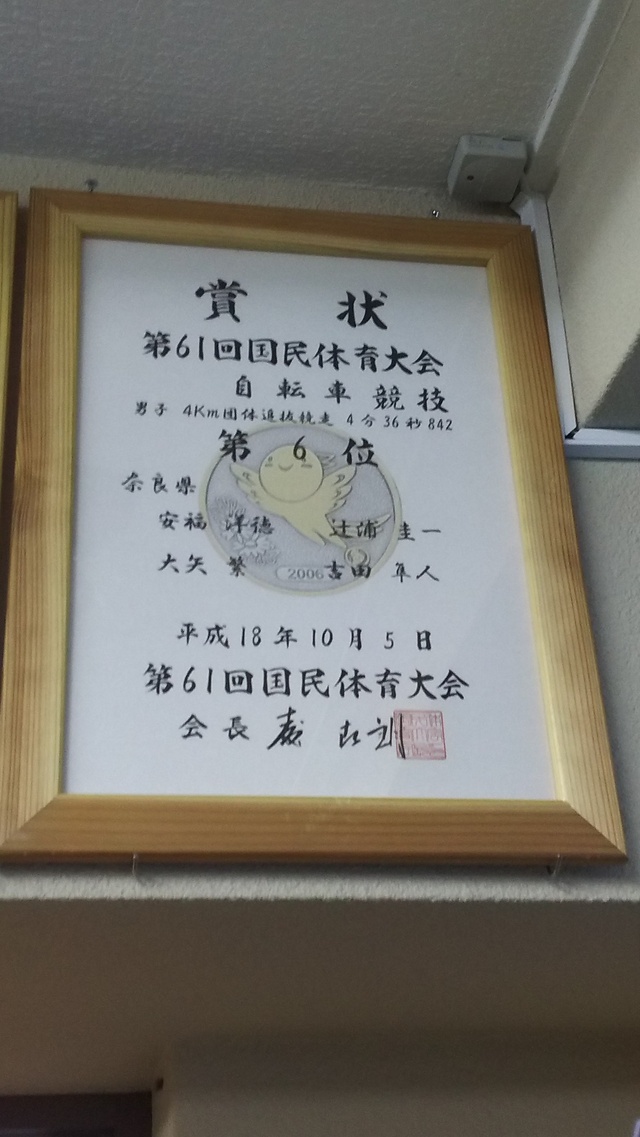 賞 状
第61回国民体育大会
自転車競技
男子 4Km団体追抜競走 4分36秒842
第 6 位
奈良県
安福 洋徳 辻浦 圭一
大矢 繁 吉田 隼人
2006
平成18年10月5日
第61回国民体育大会
会長